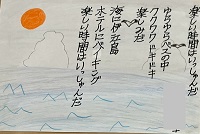 楽しい時間はいっしゅんだ
ゆらゆらバスの中
ワクワク・ドキドキ
楽しみだ
海に伊江島
ホテルにバイキング
楽しい時間はいっしゅんだ